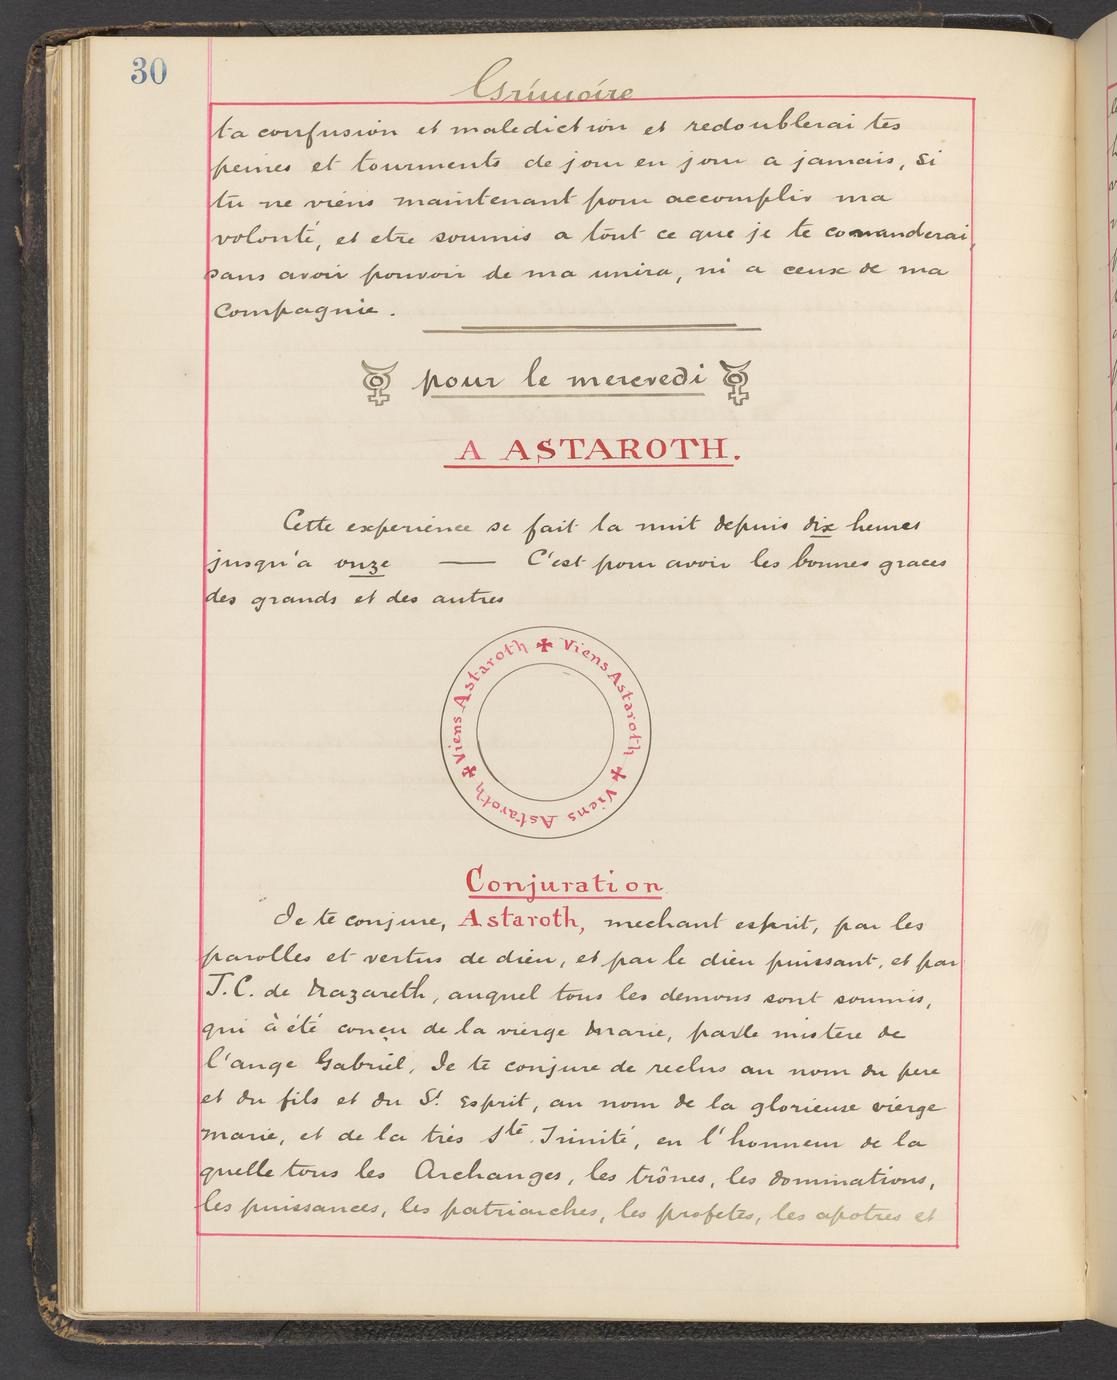 30
Grimoire
ta confusion et malediction et redoublerai tes
peines et tourments de jour en jour a jamais, si
tu ne viens maintenant pour accomplir ma
volonté, et etre soumis a tout ce que je te comanderai,
sans avoir pouvoir de ma unira, ni a ceux de ma
Compagnie.
pour le mercredi
A ASTAROTH.
Cette experience se fait la nuit depuis dix heures
jusqu'a onze — C'est pour avoir les bonnes graces
des grands et des autres
✠ Viens Astaroth ✠ Viens Astaroth ✠ Viens Astaroth
Conjuration
Je te conjure, Astaroth, mechant esprit, par les
parolles et vertus de dieu, et par le dieu puissant, et par
J.C. de Nazareth, auquel tous les demons sont soumis,
qui à été conçu de la vierge Marie, parle mistere de
l'ange Gabriel, Je te conjure de reclus au nom du pere
et du fils et du St. Esprit, au nom de la glorieuse vierge
Marie, et de la très Ste. Trinité, en l'honneur de la
quelle tous les Archanges, les trônes, les dominations,
les puissances, les patriarches, les profetes, les apotres et